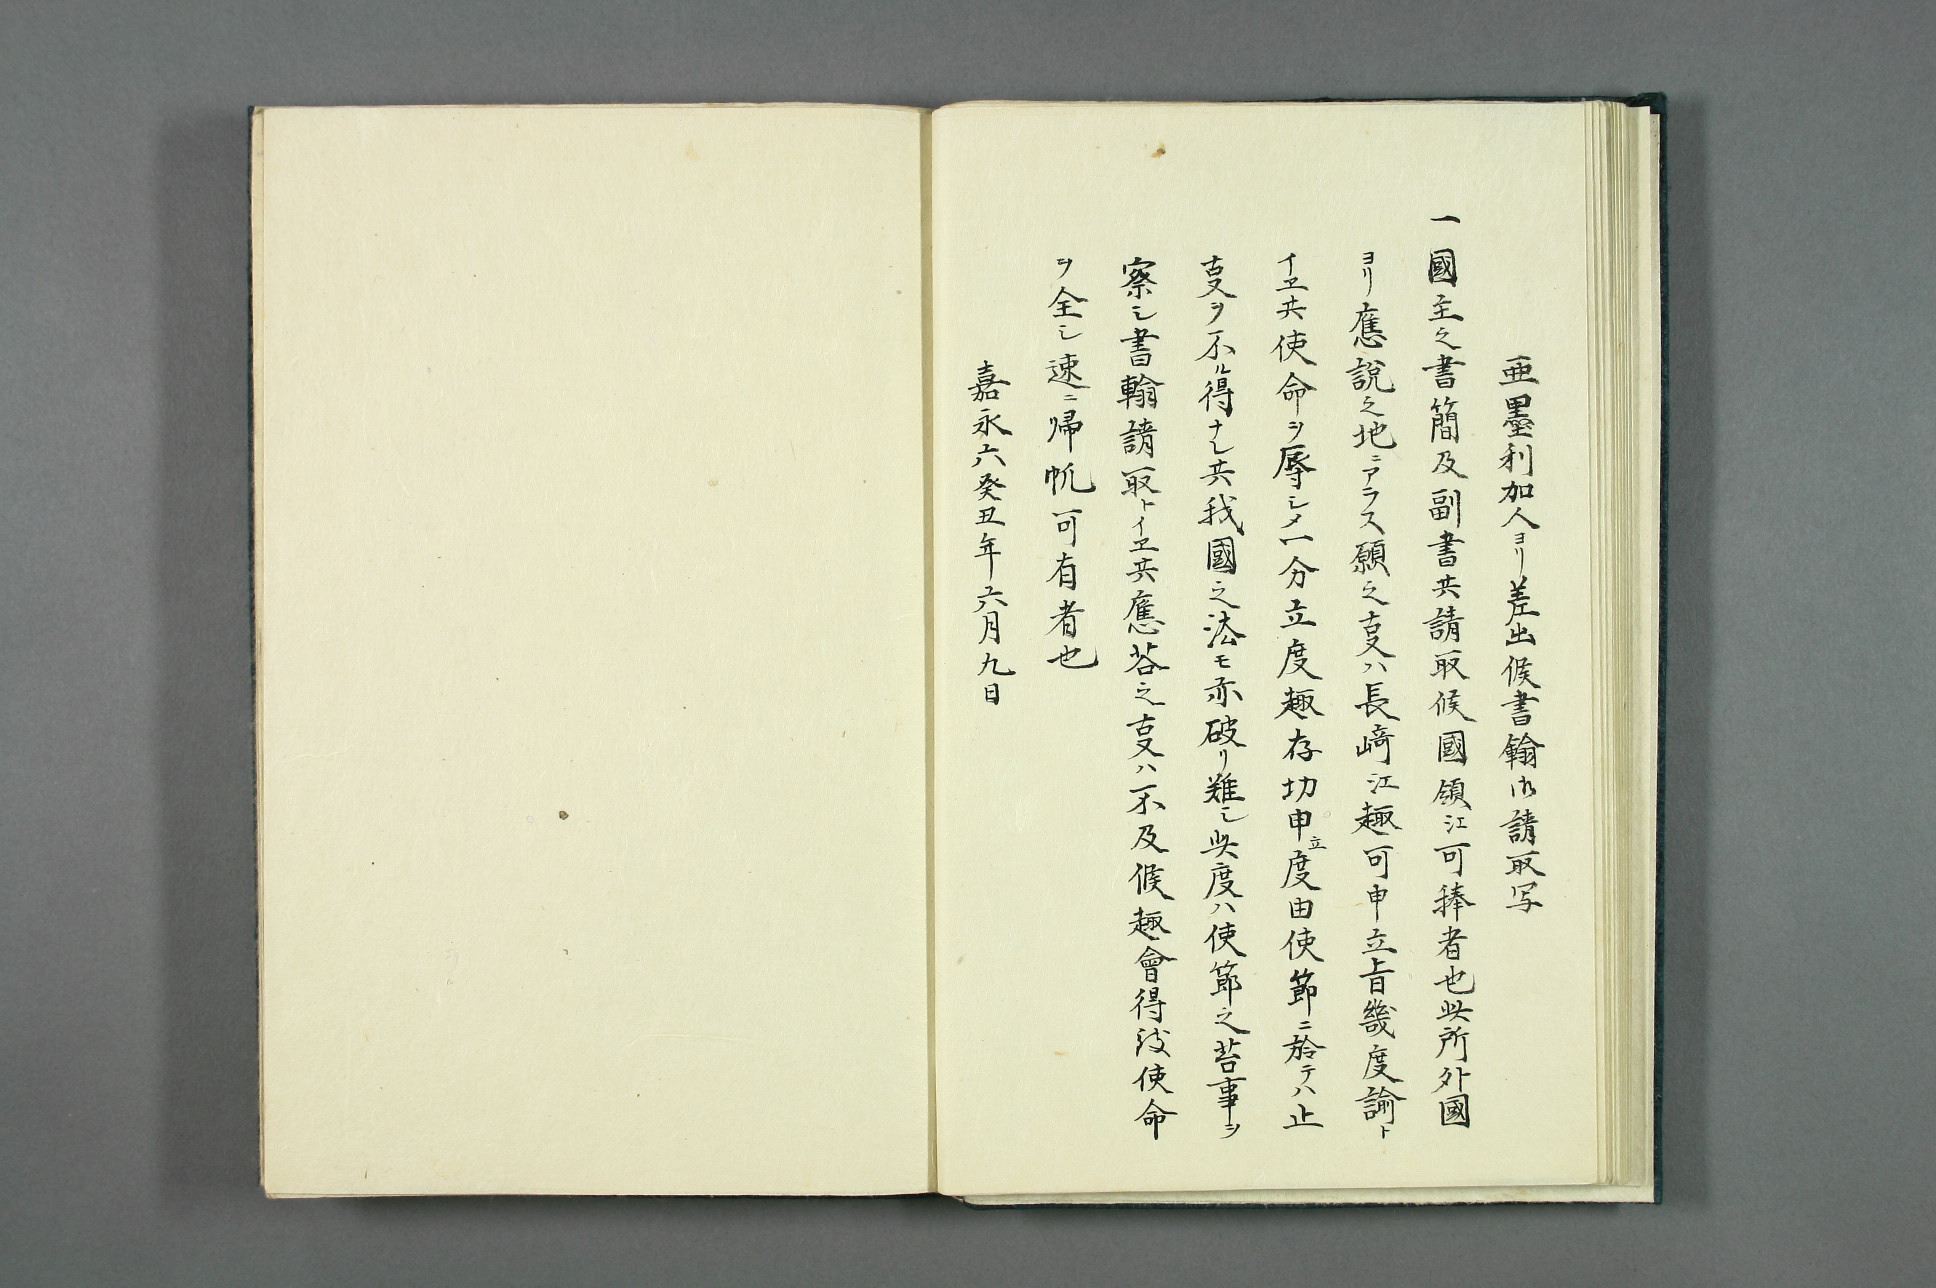 亜墨利加人ヨリ差出候書翰御請取写
一國主之書簡及副書共請取候國領江可捧者也此所外國
ヨリ應說之地ニアラス願之叓ハ長﨑江趣可申立旨幾度諭ト
イヱ共使命ヲ辱シメ一分立度趣存切申立度由使節ニ於テハ止
叓ヲ不ル得ナレ共我國之法モ亦破リ難シ此度ハ使節之苦事ヲ
察シ書翰請取トイヱ共應荅之叓ハ不及候趣會得致使命
ヲ全シ速ニ帰帆可有者也
嘉永六癸丑年六月九日